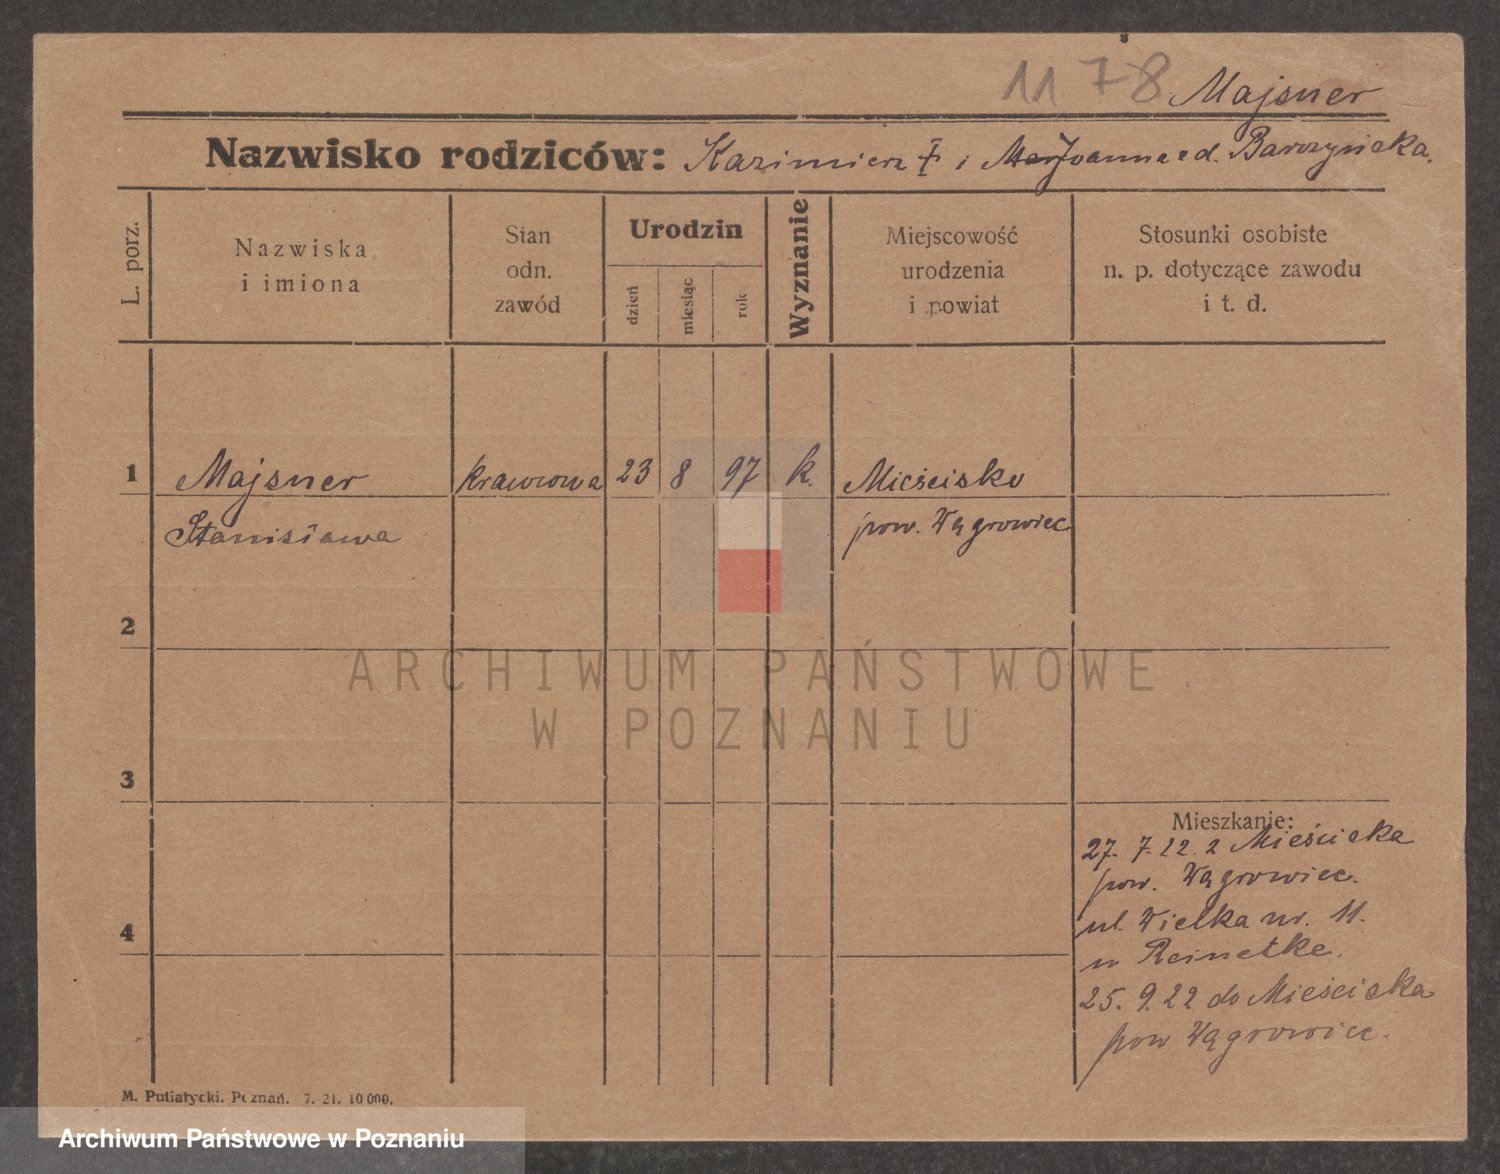 1178 Majsner
Nazwisko rodziców: Kazimierz i Joanna Barczynska.
L. porz.
Nazwiska i imiona
Stan odn. zawód
Urodzin
dzień
miesiąc
rok
Wyznanie
Miejscowość urodzenia i powiat
Stosunki osobiste n. p. dotyczące zawodu i t. d.
1 Majsner krawcowa 23 8 97 k. Mieścisko
Stanisława pow. Wągrowiec
2
ARCHIWUM PAŃSTWOWE
W POZNANIU
3
Mieszkanie:
27. 7. 22. z Mieściska
pow. Wągrowiec.
ul. Wielka nr. 11.
4
u Reinetke.
25. 9. 22 do Mieściska
pow Wągrowiec.
M. Putiatycki. Poznań. 7. 21. 10 000.
Archiwum Państwowe w Poznaniu